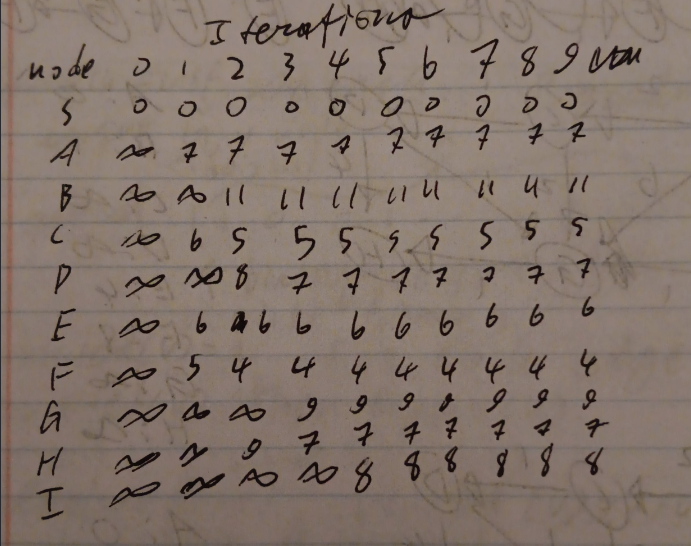 Iterations
node 0 1 2 3 4 5 6 7 8 9
S 0 0 0 0 0 0 0 0 0 0
A ∞ 7 7 7 7 7 7 7 7 7
B ∞ ∞ 11 11 11 11 11 11 11 11
C ∞ 6 5 5 5 5 5 5 5 5
D ∞ ∞ 8 7 7 7 7 7 7 7
E ∞ 6 6 6 6 6 6 6 6 6
F ∞ 5 4 4 4 4 4 4 4 4
G ∞ ∞ ∞ 9 9 9 9 9 9 9
H ∞ ∞ 9 7 7 7 7 7 7 7
I ∞ ∞ ∞ ∞ 8 8 8 8 8 8